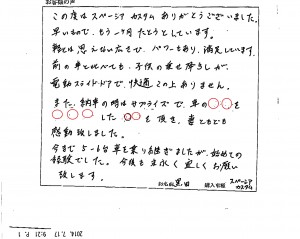 お客様の声
この度はスペーシアカスタムありがとうございました。
早いもので、もう一ヶ月たとうとしています。
軽とは思えない広さで、パワーもあり、満足しています。
前の車と比べても、子供の乗せ降ろしが、
電動スライドドアで、快適この上ありません。
また、納車の時はサプライズで、車の
した を頂き、妻ともども
感動致しました。
今まで5~6台車を乗り継ぎましたが、始めての
経験でした。今後も末永く宜しくお願い
致します。
お名前 黒田 購入車種 スペーシア
カスタム
2014. 7.17 9:21 P. 1